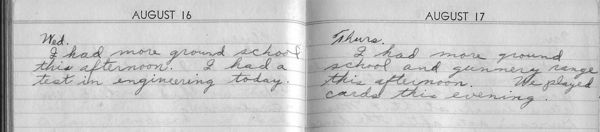 AUGUST 16
Wed.
I had more ground school
this afternoon. I had a
test in engineering today.
AUGUST 17
Thurs.
I had more ground
school and gunnery range
this afternoon. We played
cards this evening.